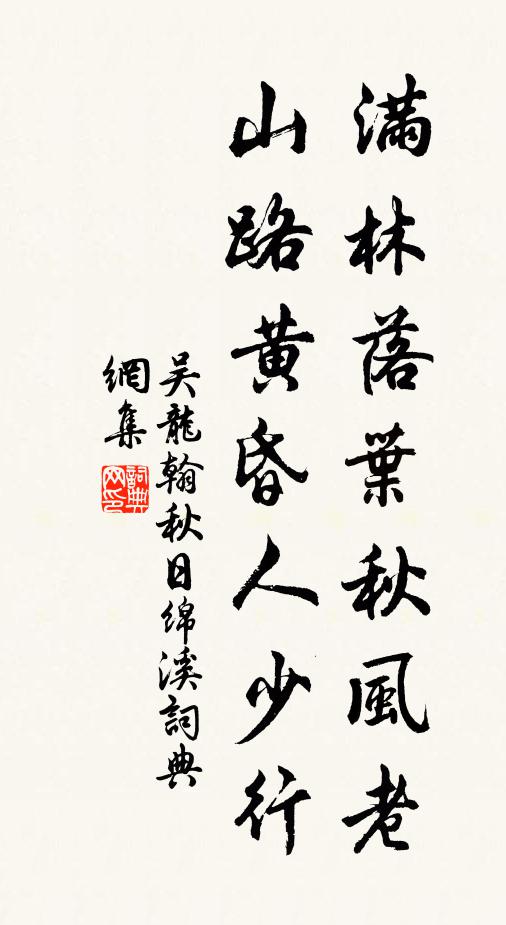 滿林落葉秋風老
山路黃昏人少行
吴龍翰秋日绵溪詞典
網集
詞典網印